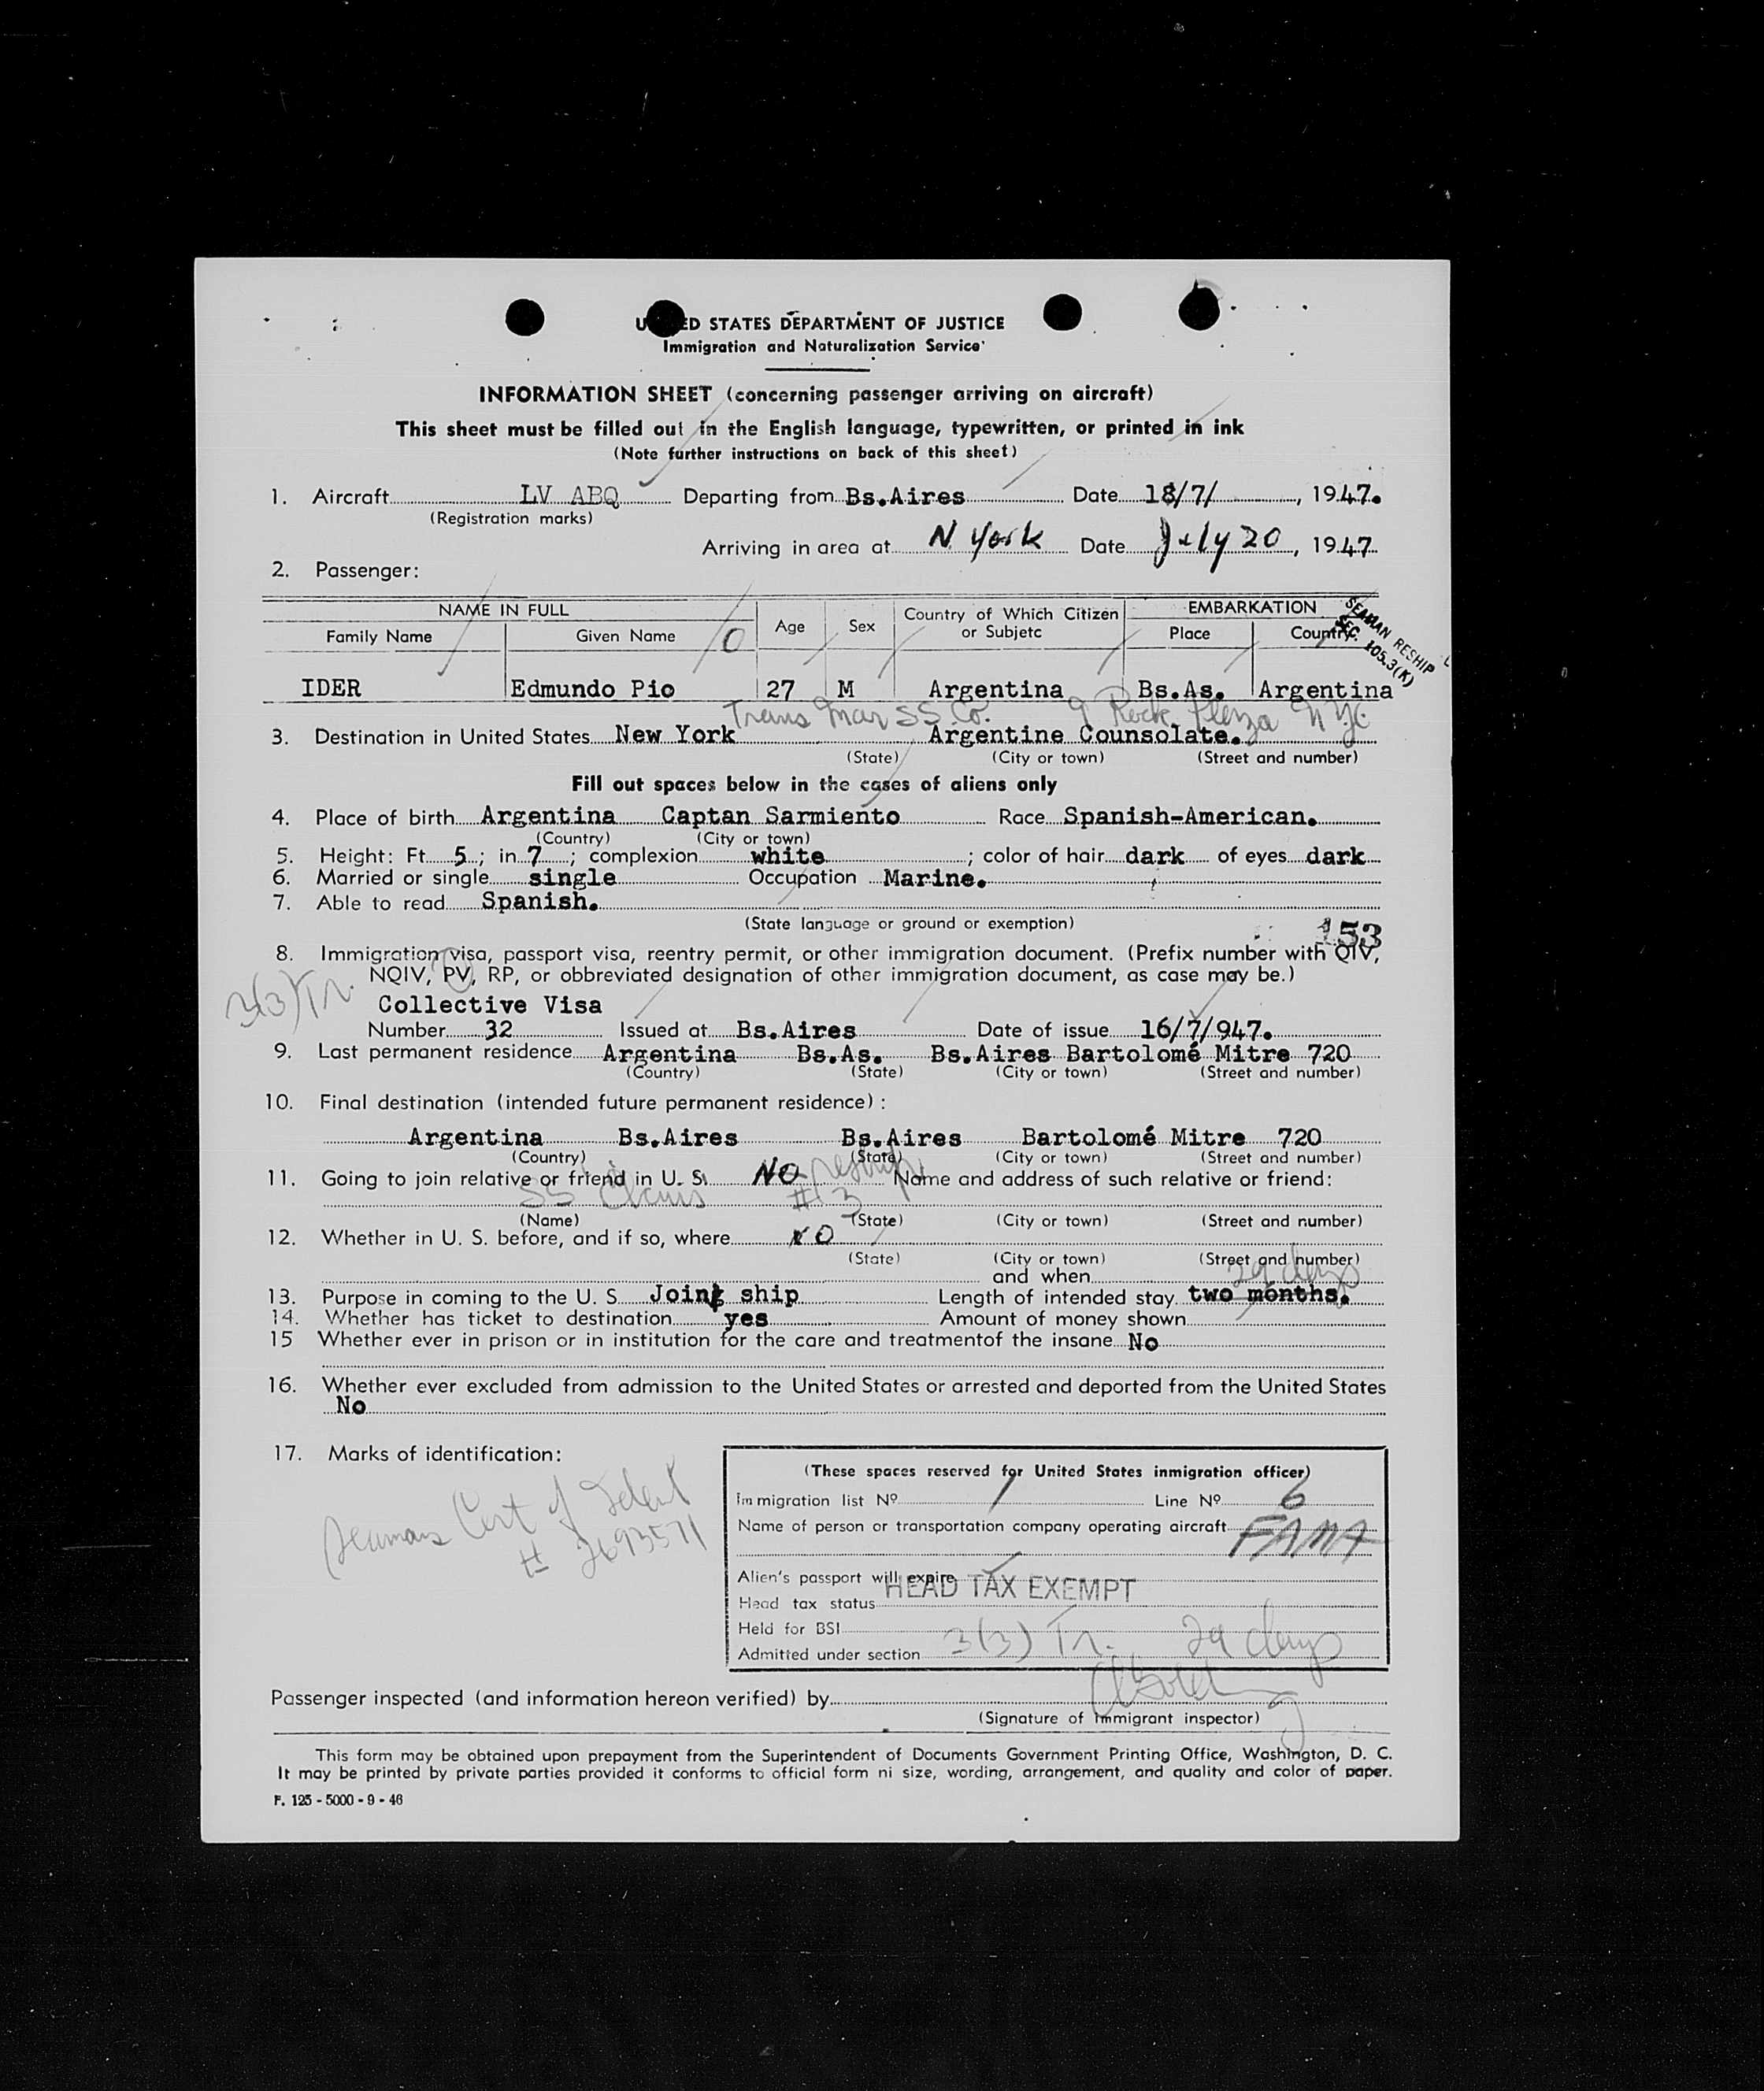 ED STATES DEPARTMENT OF JUSTICE
Immigration and Naturalization Service
INFORMATION SHEET (concerning passenger arriving on aircraft)
This sheet must be filled out in the English language, typewritten, or printed in ink
(Note further instructions on back of this sheet)
1. Aircraft LV ABQ Departing from Bs.Aires Date 18/7/, 1947.
(Registration marks)
Arriving in area at N York Date July 20, 1947
2. Passenger:
NAME IN FULL Age Sex Country of Which Citizen or Subjetc EMBARKATION
Family Name Given Name Place Country
SEAMAN RESHIP
SEC. 105.3(K)
0
IDER Edmundo Pio 27 M Argentina Bs.As. Argentina
Trans Mar SS Co. 9 Rock Plenza N Y C.
3. Destination in United States New York Argentine Counsolate.
(State) (City or town) (Street and number)
Fill out spaces below in the cases of aliens only
4. Place of birth Argentina Captan Sarmiento Race Spanish-American.
(Country) (City or town)
5. Height: Ft. 5; in 7; complexion white; color of hair dark of eyes dark
6. Married or single single Occupation Marine.
7. Able to read Spanish.
(State language or ground or exemption)
153
8. Immigration visa, passport visa, reentry permit, or other immigration document. (Prefix number with QIV,
NQIV, PV, RP, or obbreviated designation of other immigration document, as case may be.)
3(3) Tr.
Collective Visa
Number 32 Issued at Bs.Aires Date of issue 16/7/947.
9. Last permanent residence Argentina Bs.As. Bs.Aires Bartolomé Mitre 720
(Country) (State) (City or town) (Street and number)
10. Final destination (intended future permanent residence):
Argentina Bs.Aires Bs.Aires Bartolomé Mitre 720
(Country) (State) (City or town) (Street and number)
11. Going to join relative or friend in U. S. NO reship Name and address of such relative or friend:
SS # 3
(Name) (State) (City or town) (Street and number)
12. Whether in U. S. before, and if so, where NO
(State) (City or town) (Street and number)
and when 29 days
13. Purpose in coming to the U. S. Joing ship Length of intended stay two months.
14. Whether has ticket to destination yes Amount of money shown
15 Whether ever in prison or in institution for the care and treatmentof the insane No
16. Whether ever excluded from admission to the United States or arrested and deported from the United States
No
17. Marks of identification:
Seamans Cert of Ident
# 2693571
(These spaces reserved for United States inmigration officer)
Immigration list Nº 1 Line Nº 6
Name of person or transportation company operating aircraft FAMA
Alien's passport will expire
Head tax status HEAD TAX EXEMPT
Held for BSI
Admitted under section 3(3) Tr. 29 days
Passenger inspected (and information hereon verified) by
(Signature of Immigrant inspector)
This form may be obtained upon prepayment from the Superintendent of Documents Government Printing Office, Washington, D. C.
It may be printed by private parties provided it conforms to official form ni size, wording, arrangement, and quality and color of paper.
F. 125 - 5000 - 9 - 46